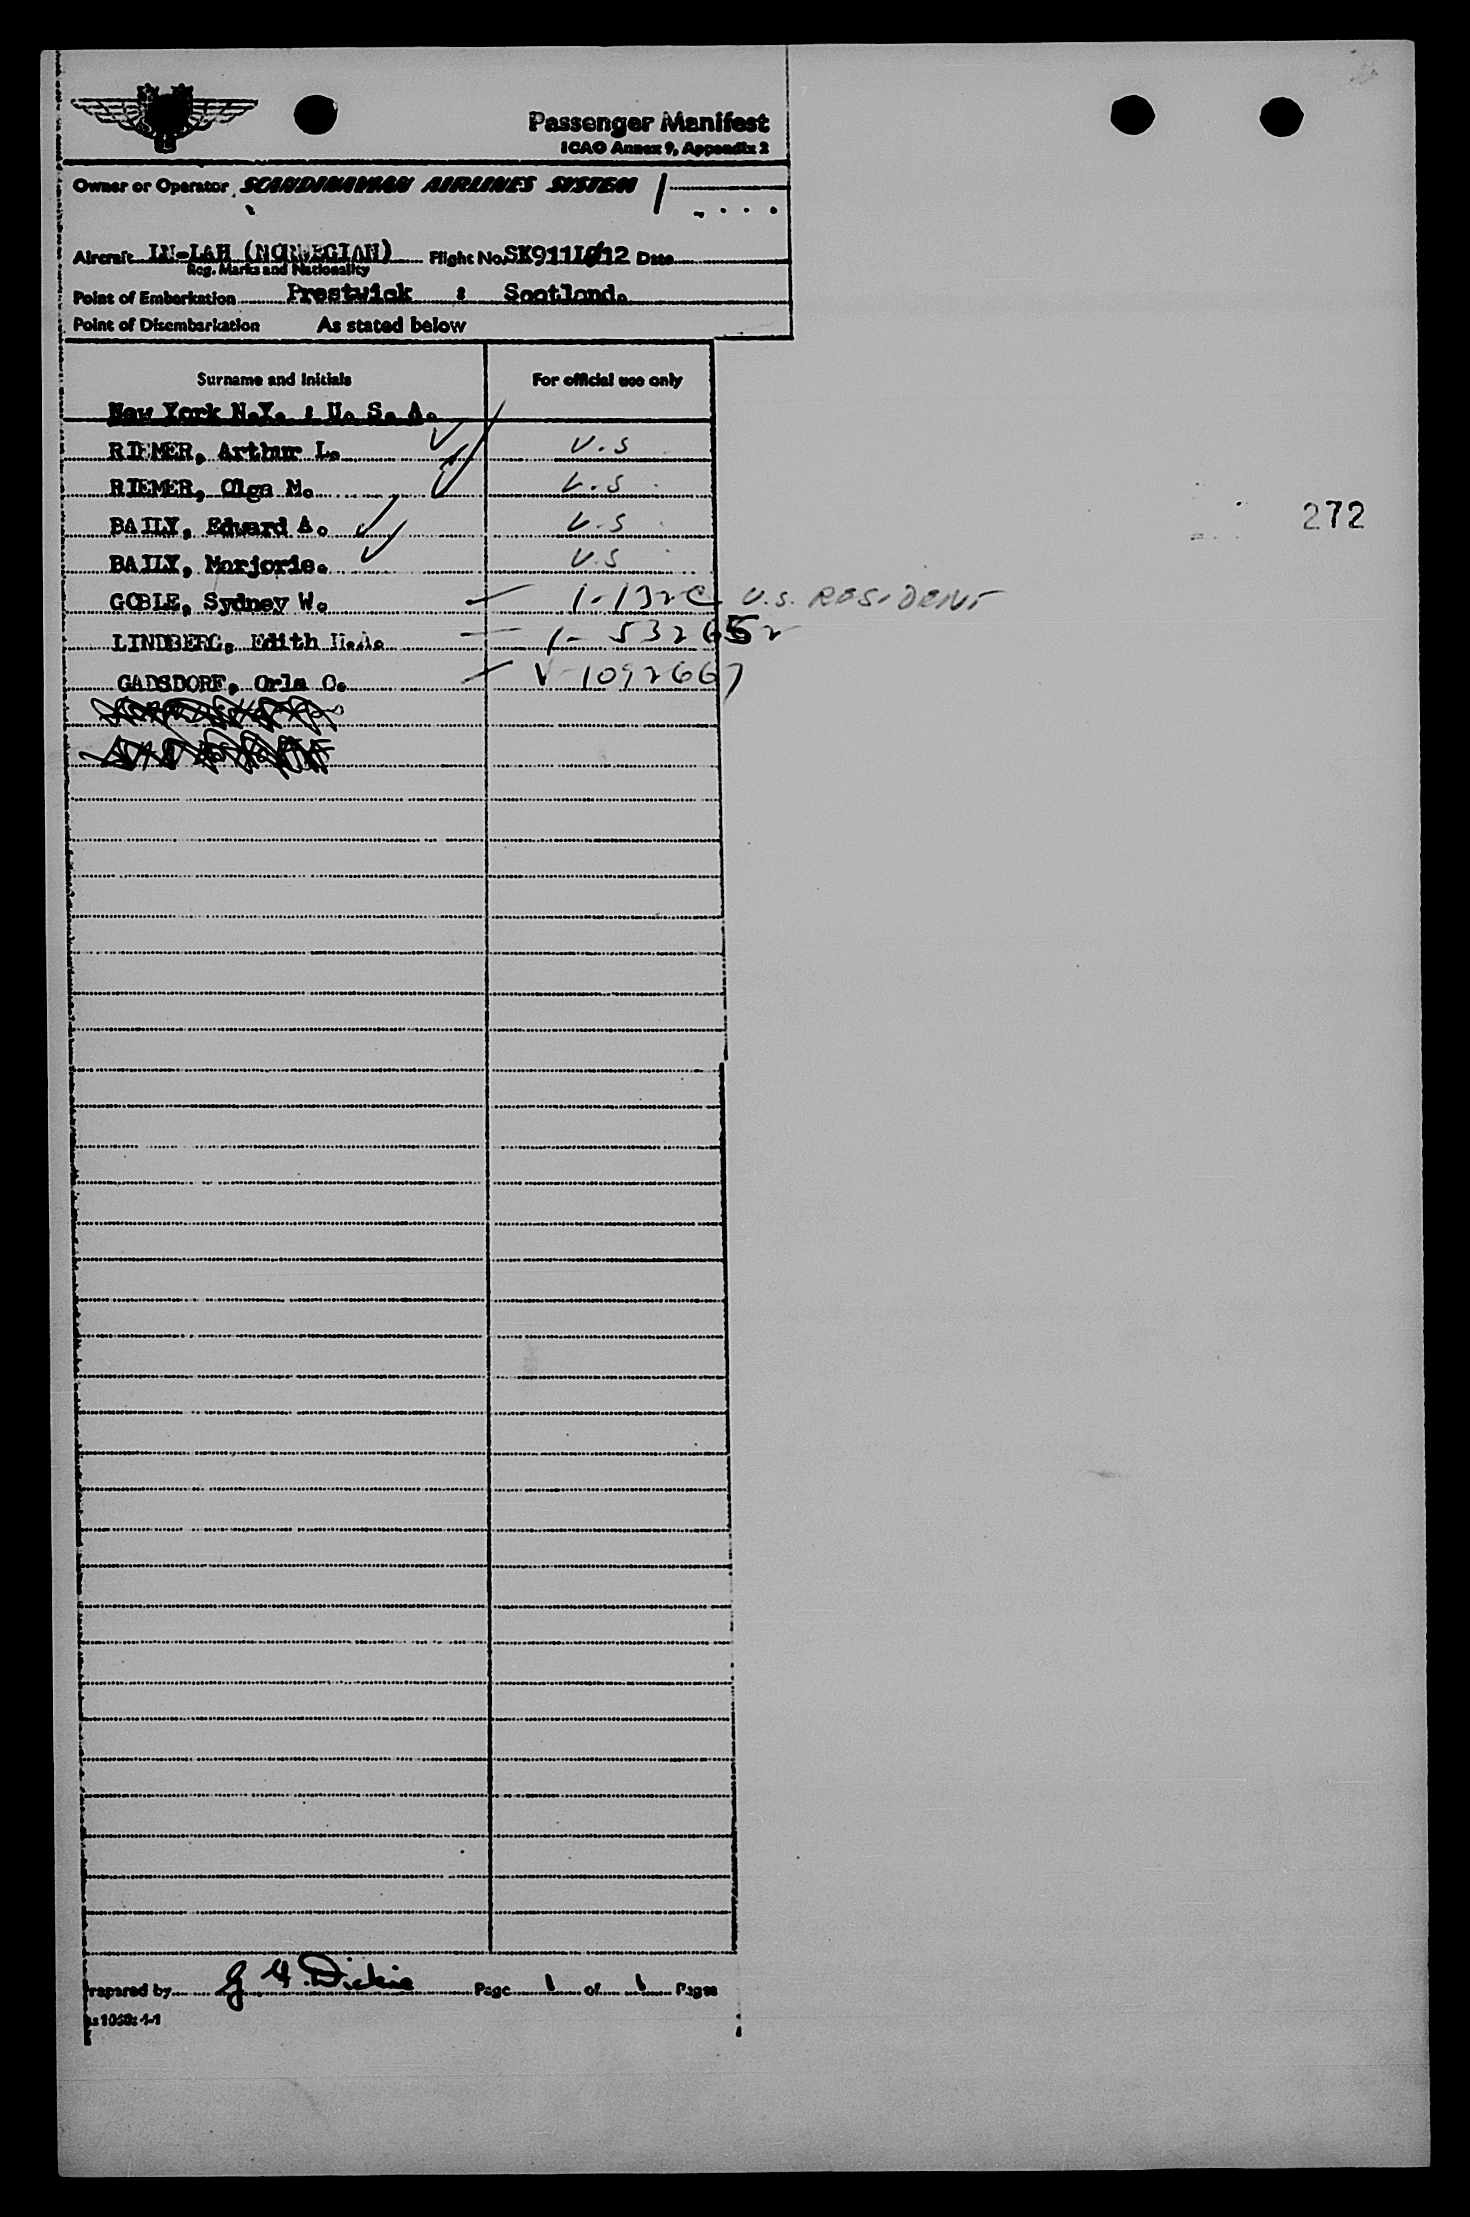 Passenger Manifest
ICAO Annex 9, Appendix 2
Owner or Operator SCANDINAVIAN AIRLINES SYSTEM
Aircraft LN-LAH (NORWEGIAN) Flight No. SK911 12 Date
Reg. Marks and Nationality
Point of Embarkation Prestwick : Scotland.
Point of Disembarkation As stated below
Surname and Initials For official use only
New York N.Y. : U. S. A.
RIEMER, Arthur L. U.S
RIEMER, Olga M. U.S
BAILY, Edward A. U.S
BAILY, Marjorie. U.S
GOBLE, Sydney W. 1-132C U.S. RESIDENT
272
LINDBERG, Edith
GADSDORF, Orla O. V-1092667
Prepared by G Dickie Page 1 of 1 Pages